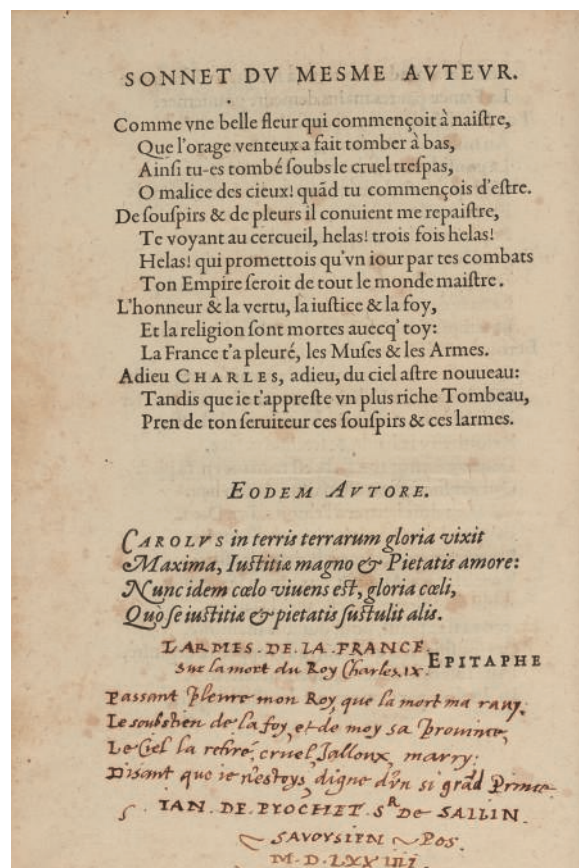 SONNET DV MESME AVTEVR.
Comme vne belle fleur qui commençoit à naiſtre,
Que l'orage venteux a fait tomber à bas,
Ainſi tu-es tombé ſoubs le cruel treſpas,
O malice des cieux! quãd tu commençois d'eſtre.
De ſouſpirs & de pleurs il conuient me repaiſtre,
Te voyant au cercueil, helas! trois fois helas!
Helas! qui promettois qu'vn iour par tes combats
Ton Empire ſeroit de tout le monde maiſtre.
L'honneur & la vertu, la iuſtice & la foy,
Et la religion ſont mortes auecq' toy:
La France t'a pleuré, les Muſes & les Armes.
Adieu CHARLES, adieu, du ciel aſtre nouueau:
Tandis que ie t'appreſte vn plus riche Tombeau,
Pren de ton ſeruiteur ces ſouſpirs & ces larmes.
EODEM AVTORE.
CAROLVS in terris terrarum gloria vixit
Maxima, Iuſtitiæ magno & Pietatis amore:
Nunc idem cœlo viuens eſt, gloria cœli,
Quò ſe iuſtitiæ & pietatis ſuſtulit alis.
LARMES. DE. LA. FRANCE.
Sur la mort du Roy Charles. IX. EPITAPHE
Passant pleure mon Roy, que la mort ma rauy.
Le soubstien de la foy, et de moy sa prouince,
Le Ciel la retiré, cruel, Jalloux, marry:
Disant que ie n'estoys, digne d'vn si grãd Prince
IAN. DE. PIOCHET. SR DE SALLIN.
SAVOYSIEN POS.
M. D. LXX IIII.